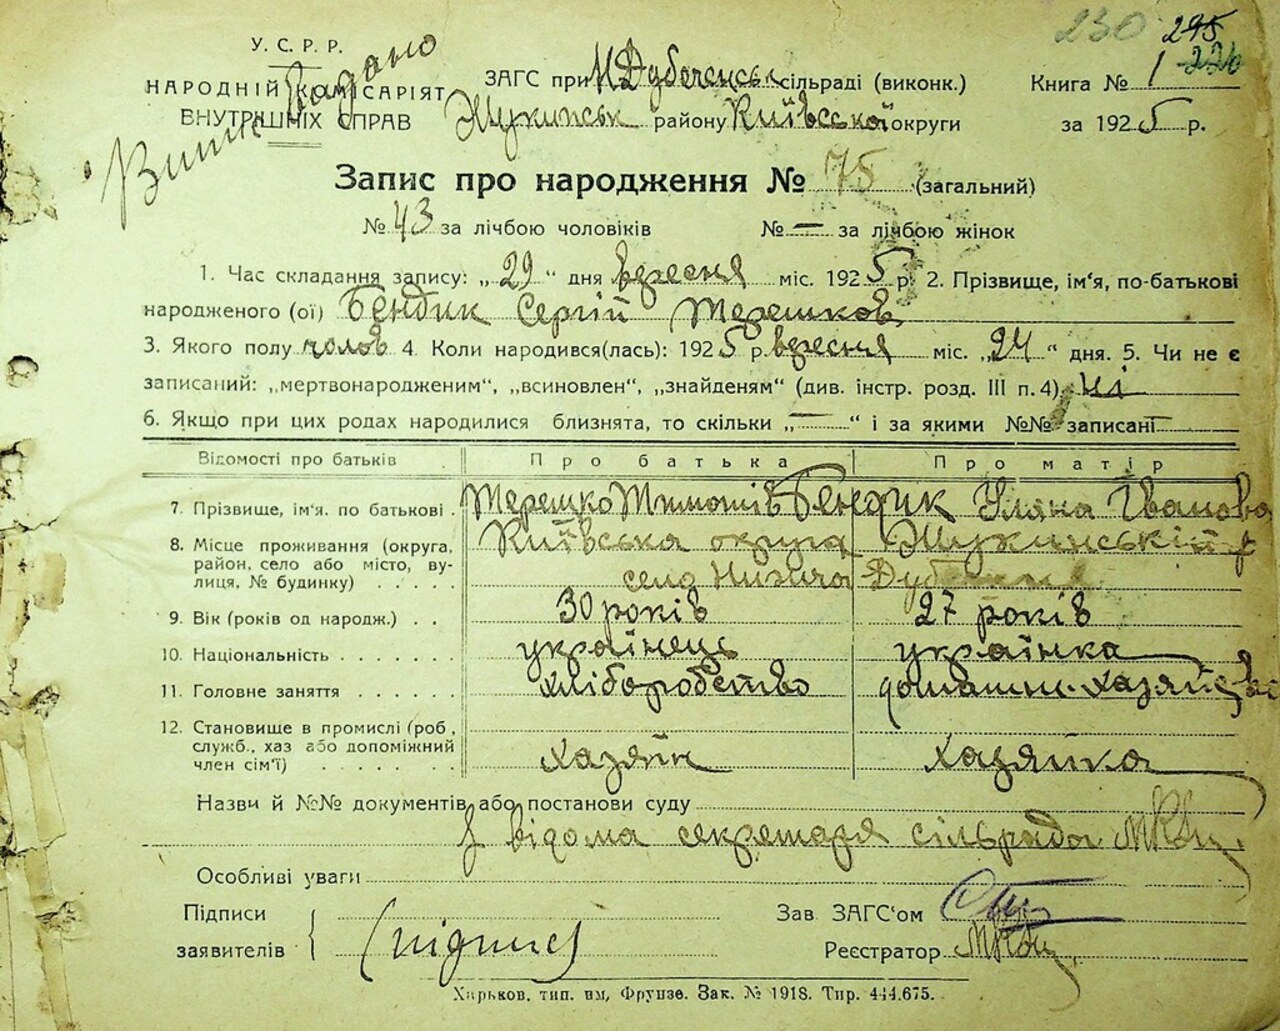 230 295
226
У. С. Р. Р.
НАРОДНІЙ КОМІСАРІЯТ
ВНУТРІШНІХ СПРАВ
Видано
ЗАГС при Н Дубеченськ сільраді (виконк.)
Жукинськ району Київської округи
Книга № 1
за 1925 р.
Запис про народження № 75 (загальний)
№ 43 за лічбою чоловіків № — за лічбою жінок
1. Час складання запису: „29“ дня вересня міс. 1925 р. 2. Прізвище, ім‘я, по-батькові
народженого (ої) Бендик Сергій Терешков
3. Якого полу чолов 4. Коли народився(лась): 1925 р. вересня міс. „24“ дня. 5. Чи не є
записаний: „мертвонародженим“, „всиновлен“, „знайденям“ (див. інстр. розд. III п. 4) ні
6. Якщо при цих родах народилися близнята, то скільки „—“ і за якими №№ записані —
Відомості про батьків Про батька Про матір
7. Прізвище, ім‘я. по батькові . Терешко Тимошів Бендик Уляна Іванова
8. Місце проживання (округа, Київська округа Жукинській р
район, село або місто, ву-
лиця, № будинку) . . . . село Нижча Дубечня
9. Вік (років од народж.) . . 30 років 27 років
10. Національність . . . . . . українець українка
11. Головне заняття . . . . . . хліборобство домашнє хазяйство
12. Становище в промислі (роб.,
служб., хаз або допоміжний
член сім‘ї) . . . . . . хазяїн хазяйка
Назви й №№ документів або постанови суду
З відома секретаря сільради
Особливі уваги
Підписи
заявителів { (підпис)
Зав ЗАГС‘ом
Реєстратор
Харьков, тип. им, Фрунзе. Зак. № 1918. Тир. 444.675.